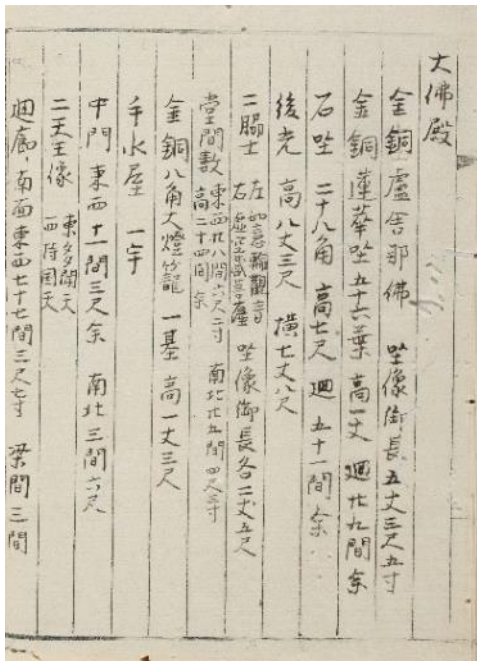 大佛殿
金銅盧舎那佛 坐像御長五丈三尺五寸
金銅蓮華坐五十六葉 高一丈 廻廿九間余
石坐 二十八角 高七尺 廻 五十一間余
後光 高八丈三尺 横七丈八尺
二脇士 左如意輪観音 右虚空蔵菩薩 坐像御長各二丈五尺
堂間数 東西廿八間六尺二寸 高二十四間余 南北廿五間四尺三寸
金銅八角大燈籠 一基 高一丈三尺
手水屋 一宇
中門 東西十一間三尺余 南北三間六尺
二天王像 東多聞天 西持国天
廻廊 南面東西七十七間三尺七寸 梁間三間